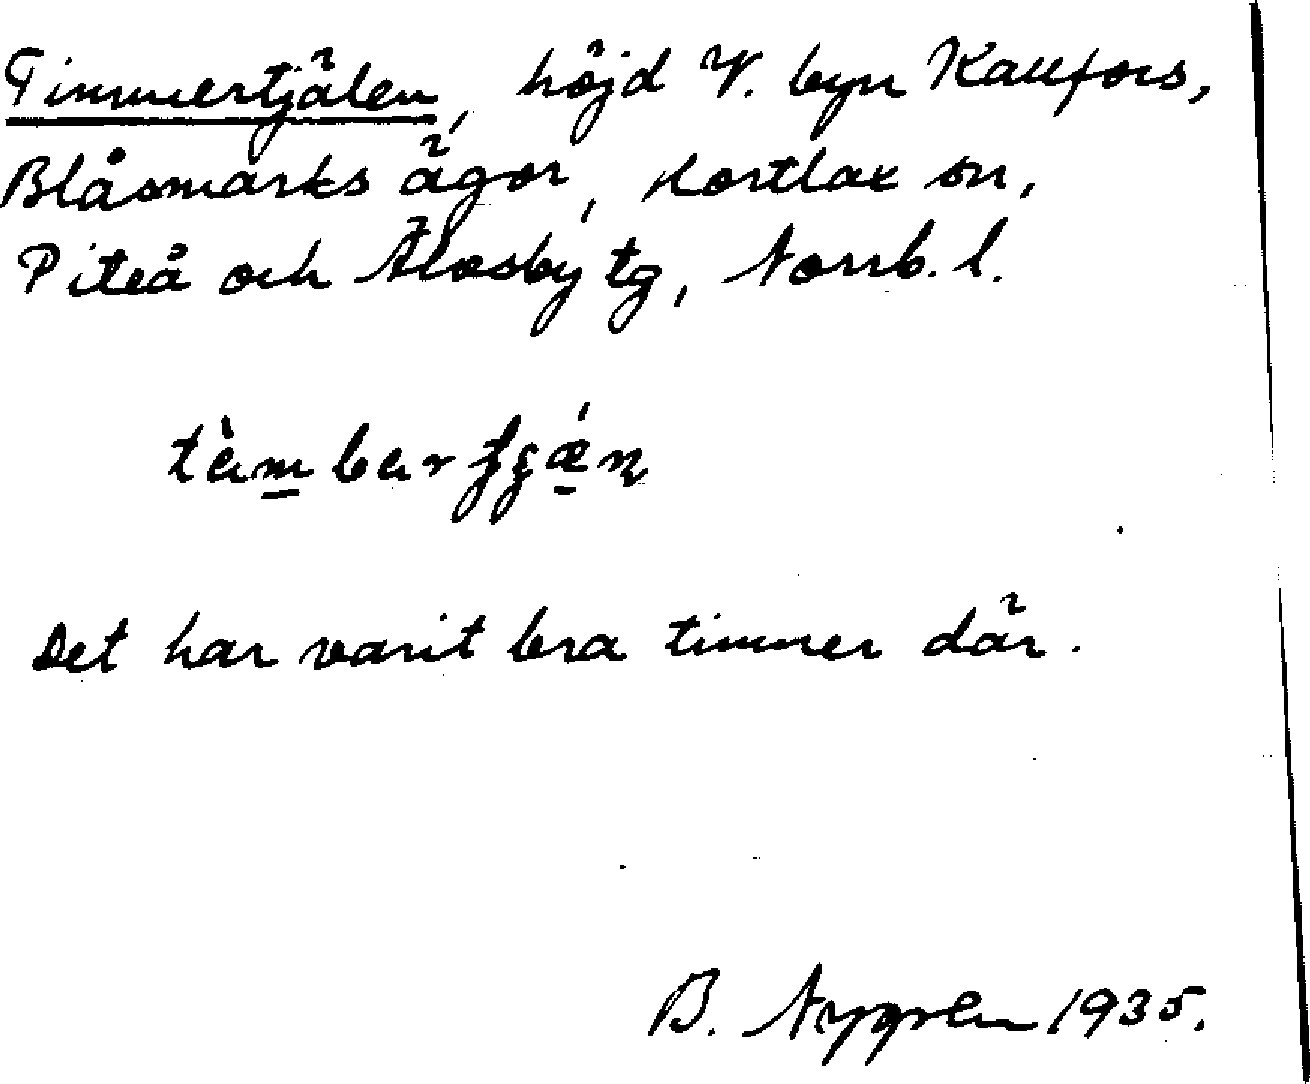 Timmertjälen, höjd V. byn Kallfors,
Blåsmarks ägor, Hortlax sn,
Piteå och Älvsby tg, Norrb. l.
Det har varit bra timmer där.
B. Nygren 1935.